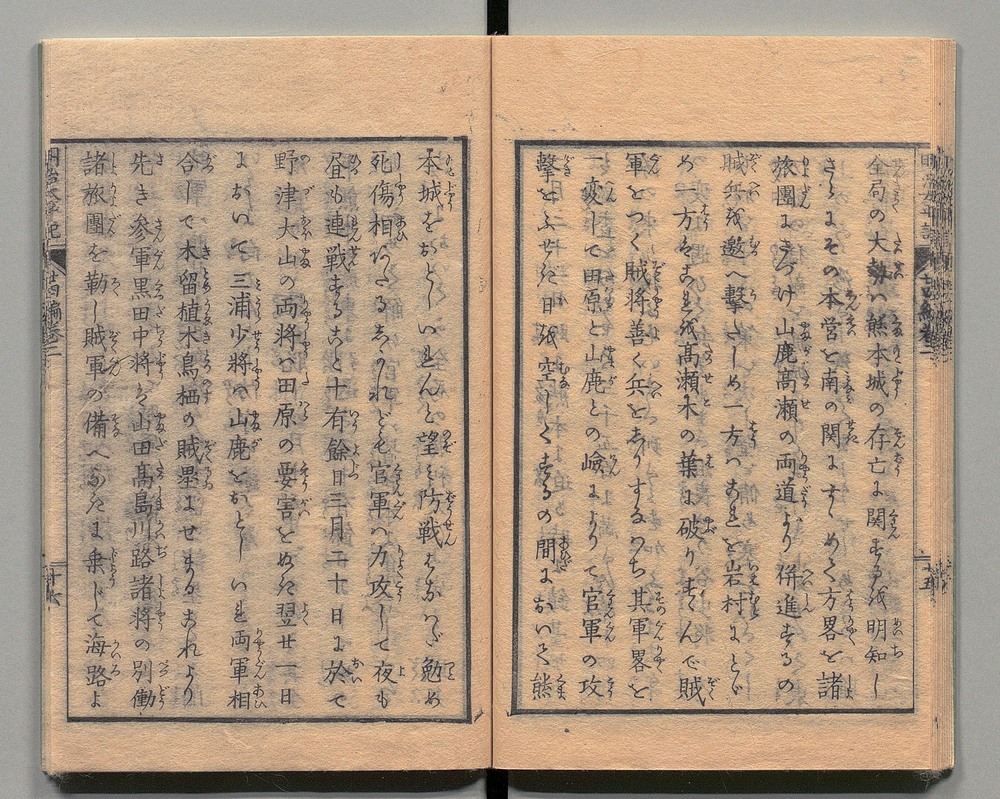 全局の大勢ハ熊本城の存亡に関するを明知し
さらにその本営を南の関にすゝめて方畧を諸
旅團にさづけ山鹿高瀬の両道より併進するの
賊兵を邀へ撃たしめ一方ハこれを岩村にとゞ
め一方ハこれを高瀬木の葉に破りすゝんで賊
軍をつく賊将善く兵をしりするのち其軍畧を
一変して田原と山鹿との嶮によりて官軍の攻
撃をふせぎ日を空しくするの間において熊
本城をおとしいれんと望み防戦はなハだ勉め
死傷相あたるしかれども官軍ハ力攻して夜も
昼も連戦すること十有餘日三月二十日に於て
野津大山の両将ハ田原の要害をぬき翌廿一日
において三浦少将ハ山鹿をおとしいれ両軍相
合して木留植木鳥栖の賊塁にせまるこれより
先き参軍黒田中将ハ山田高島川路諸将の別働
諸旅團を勒し賊軍の備へなきに乗じて海路よ
明治太平記
廿四編巻二
十五
十六